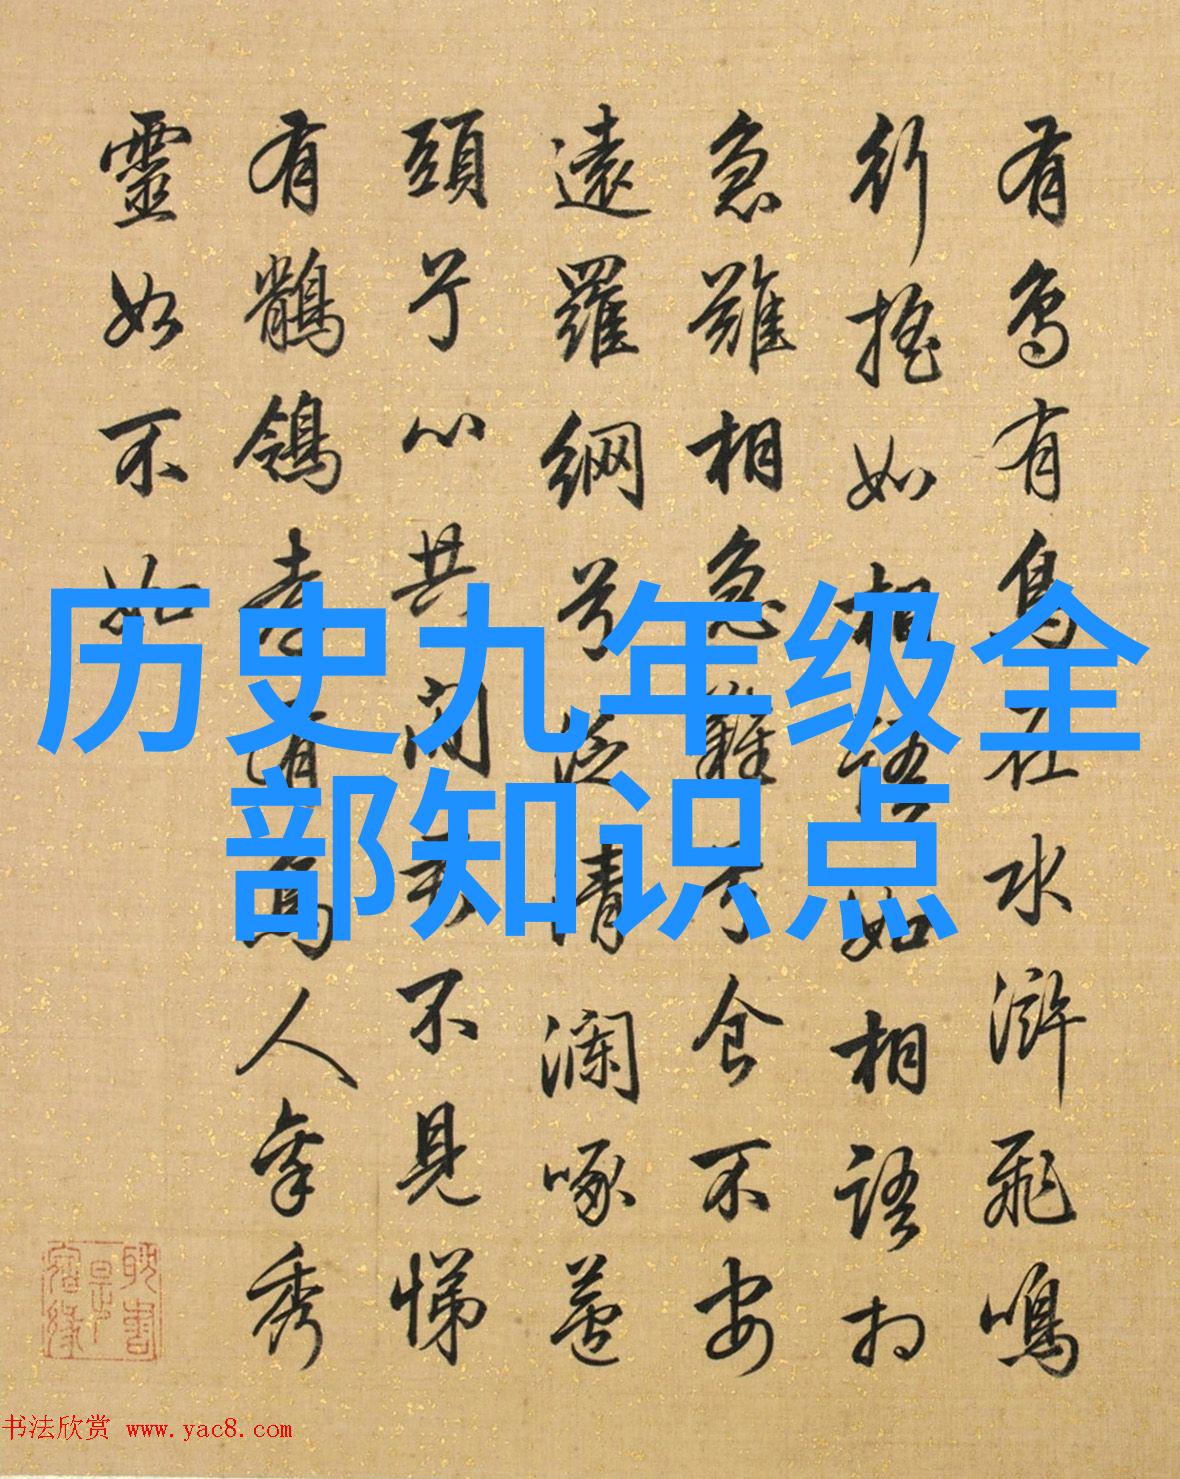 有鳥有鳥在水滸飛鳴
行搖如相語如相語
急難相急難兮食不安
遠羅網兮泛清瀾啄
頭兮心共閒不見悌
有鶺鴒人秀
靈如不如
历史九年级全
部知识点
书法欣赏 www.yac8.com